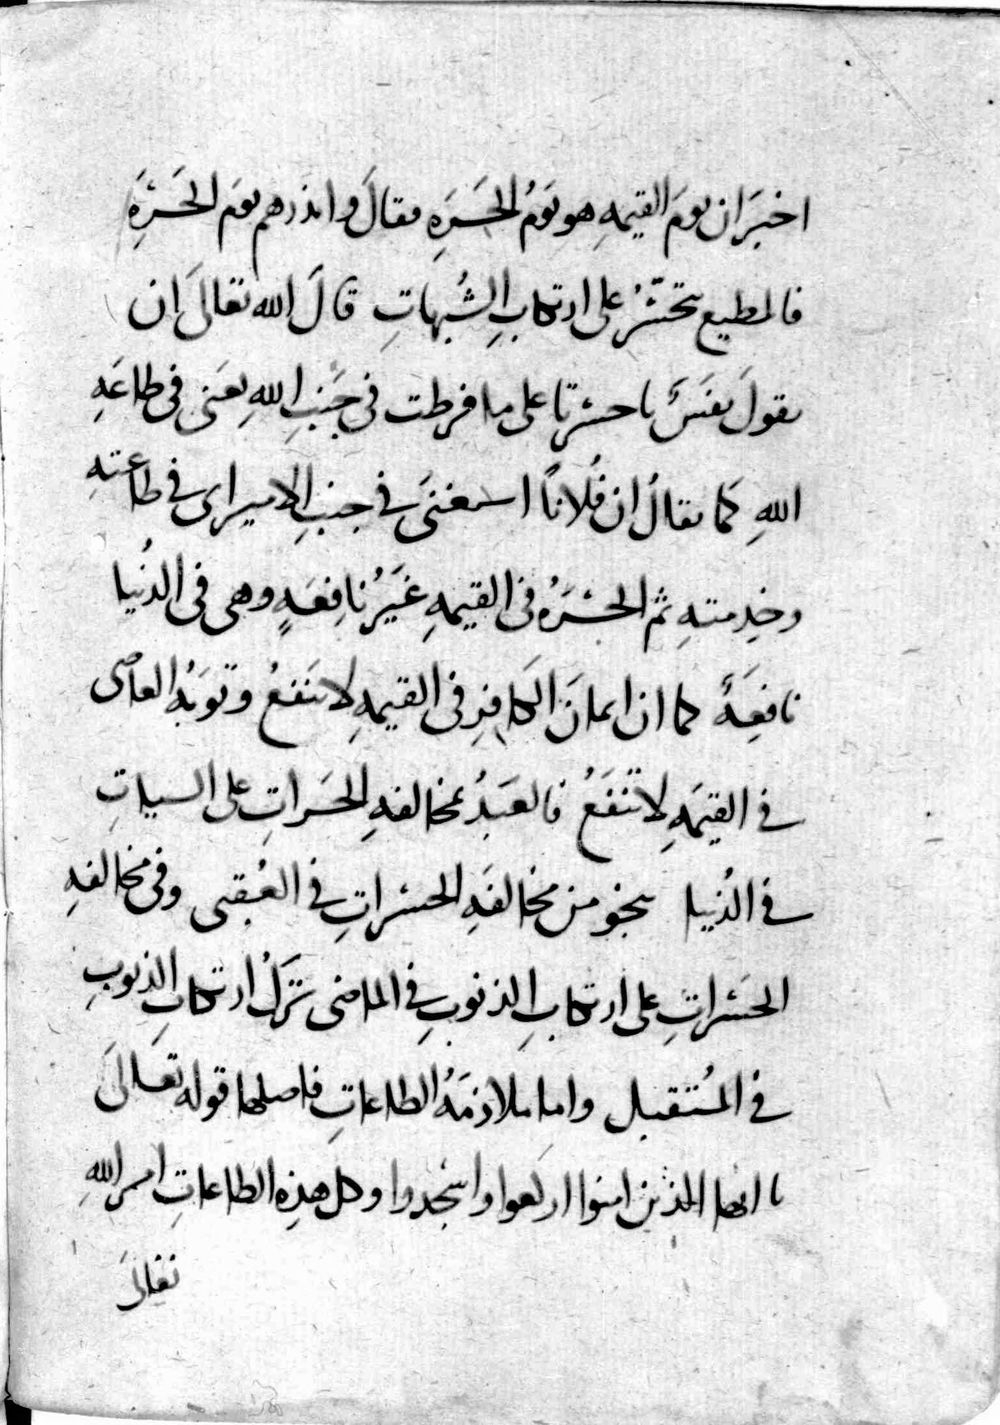 اخبر ان يوم القيمه هو يوم الحسره فقال وانذرهم يوم الحسره
فالمطيع يتحسر على ارتكاب الشبهات قال الله تعالى ان
يقول نفس يا حسرتا على ما فرطت فى جنب الله يعنى فى طاعه
الله كما يقال ان فلانا استغنى فى جنب الامير اى فى طاعته
وخدمته ثم الحسره فى القيمه غير نافعه وهى فى الدنيا
نافعه كما ان ايمان الكافر فى القيمه لا ينفع وتوبه العاصى
فى القيمه لا تنفع فالعبد بمخالفه الحسرات على السيات
فى الدنيا ينجو من مخالفه الحسرات فى العقبى وفى مخالفه
الحسرات على ارتكاب الذنوب فى الماضى ترك ارتكاب الذنوب
فى المستقبل واما ملازمه الطاعات فاصلها قوله تعالى
يا ايها الذين امنوا اركعوا واسجدوا وكل هذه الطاعات امر الله
تعالى